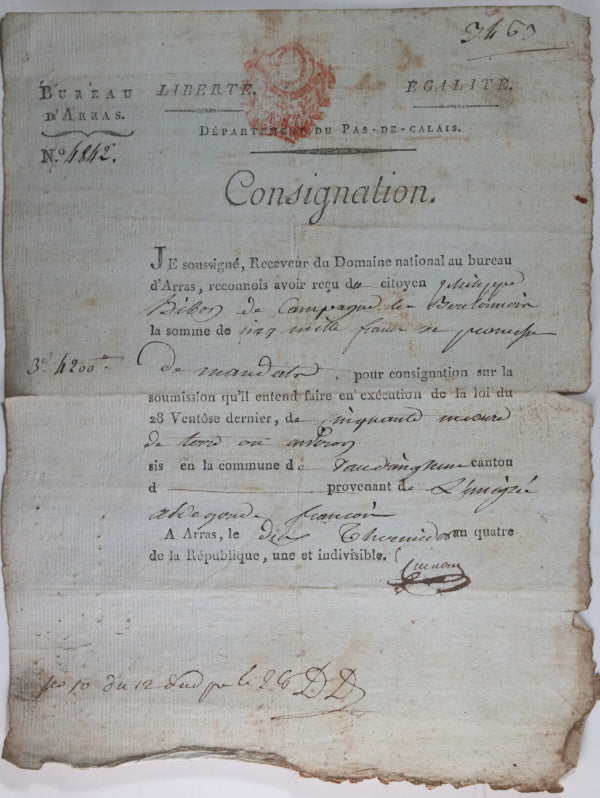 3463
BUREAU D'ARRAS.
LIBERTÉ. ÉGALITÉ.
DÉPARTEMENT DU PAS-DE-CALAIS.
N.o 4842.
Consignation.
JE soussigné, Receveur du Domaine national au bureau
d'Arras, reconnois avoir reçu du citoyen philippe
de Campagne les Boulonnois
la somme de mille francs de promesse
4200
de mandats, pour consignation sur la
soumission qu'il entend faire en exécution de la loi du
28 Ventôse dernier, de cinquante mesure
de terre ou environ
sis en la commune de canton
d provenant de L'émigré
aldegonde francois
A Arras, le dix Thermidor an quatre
de la République, une et indivisible.
10 du 12 le 26 DD